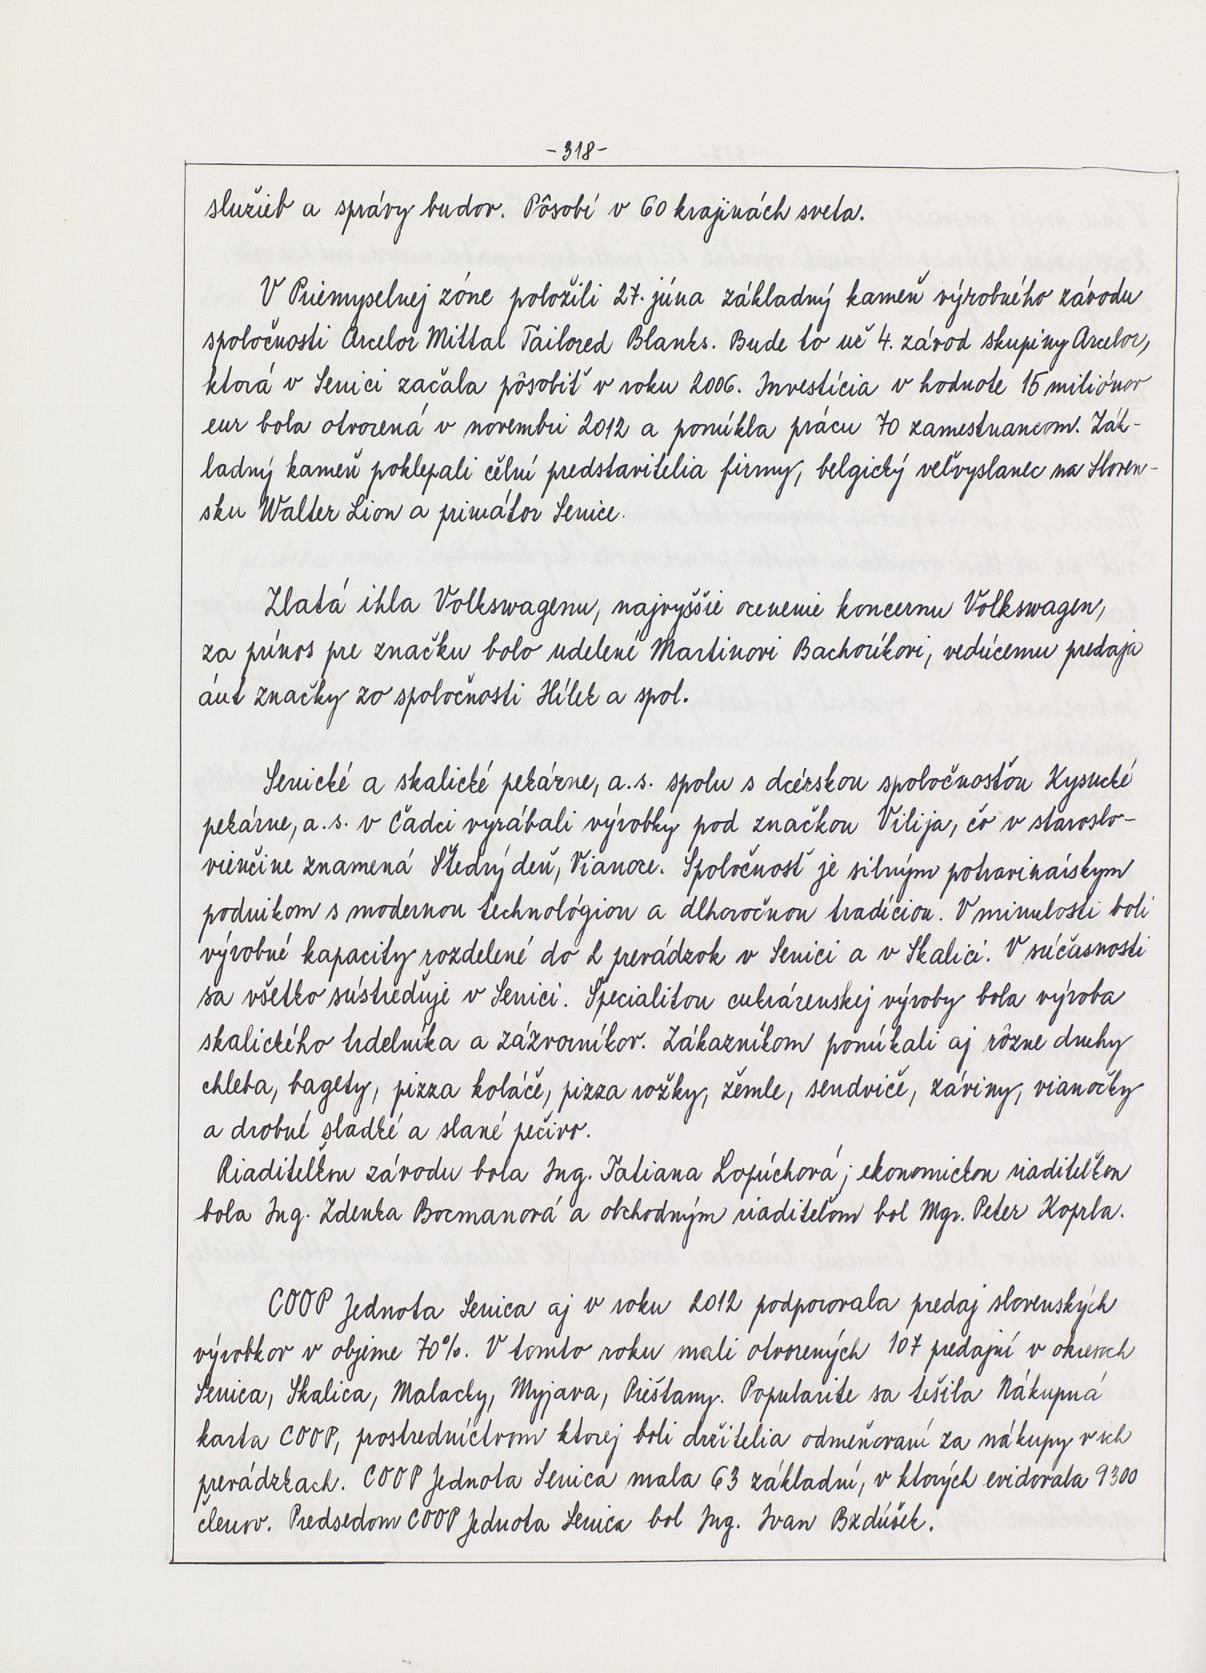 -318-
služieb a správy budov. Pôsobí v 60 krajinách sveta.
V Priemyselnej zóne položili 27. júna základný kameň výrobného závodu
spoločnosti Arcelor Mittal Tailored Blanks. Bude to už 4. závod skupiny Arcelor,
ktorá v Senici začala pôsobiť v roku 2006. Investícia v hodnote 15 miliónov
eur bola otvorená v novembri 2012 a ponúkla prácu 70 zamestnancom. Zák-
ladný kameň poklepali čelní predstavitelia firmy, belgický veľvyslanec na Sloven-
sku Walter Lion a primátor Senice.
Zlatá ihla Volkswagenu, najvyššie ocenenie koncernu Volkswagen,
za prínos pre značku bolo udelené Martinovi Bachoríkovi, vedúcemu predaja
áut značky zo spoločnosti Hílek a spol.
Senické a skalické pekárne, a.s. spolu s dcérskou spoločnosťou Kysucké
pekárne, a.s. v Čadci vyrábali výrobky pod značkou Vilija, čo v staroslo-
vienčine znamená Štedrý deň, Vianoce. Spoločnosť je silným potravinárskym
podnikom s modernou technológiou a dlhoročnou tradíciou. V minulosti boli
výrobné kapacity rozdelené do 2 prevádzok v Senici a v Skalici. V súčasnosti
sa všetko sústreďuje v Senici. Špecialitou cukrárenskej výroby bola výroba
skalického trdelníka a zázvorníkov. Zákazníkom ponúkali aj rôzne druhy
chleba, bagety, pizza koláče, pizza rožky, žemle, sendviče, záviny, vianočky
a drobné sladké a slané pečivo.
Riaditeľkou závodu bola Ing. Tatiana Lopúchová, ekonomickou riaditeľkou
bola Ing. Zdenka Bocmanová a obchodným riaditeľom bol Mgr. Peter Koprla.
COOP Jednota Senica aj v roku 2012 podporovala predaj slovenských
výrobkov v objeme 70%. V tomto roku mali otvorených 107 predajní v okresoch
Senica, Skalica, Malacky, Myjava, Piešťany. Popularite sa tešila Nákupná
karta COOP, prostredníctvom ktorej boli držitelia odmeňovaní za nákupy v ich
prevádzkach. COOP Jednota Senica mala 63 základní, v ktorých evidovala 9300
členov. Predsedom COOP Jednota Senica bol Ing. Ivan Bzdúšek.